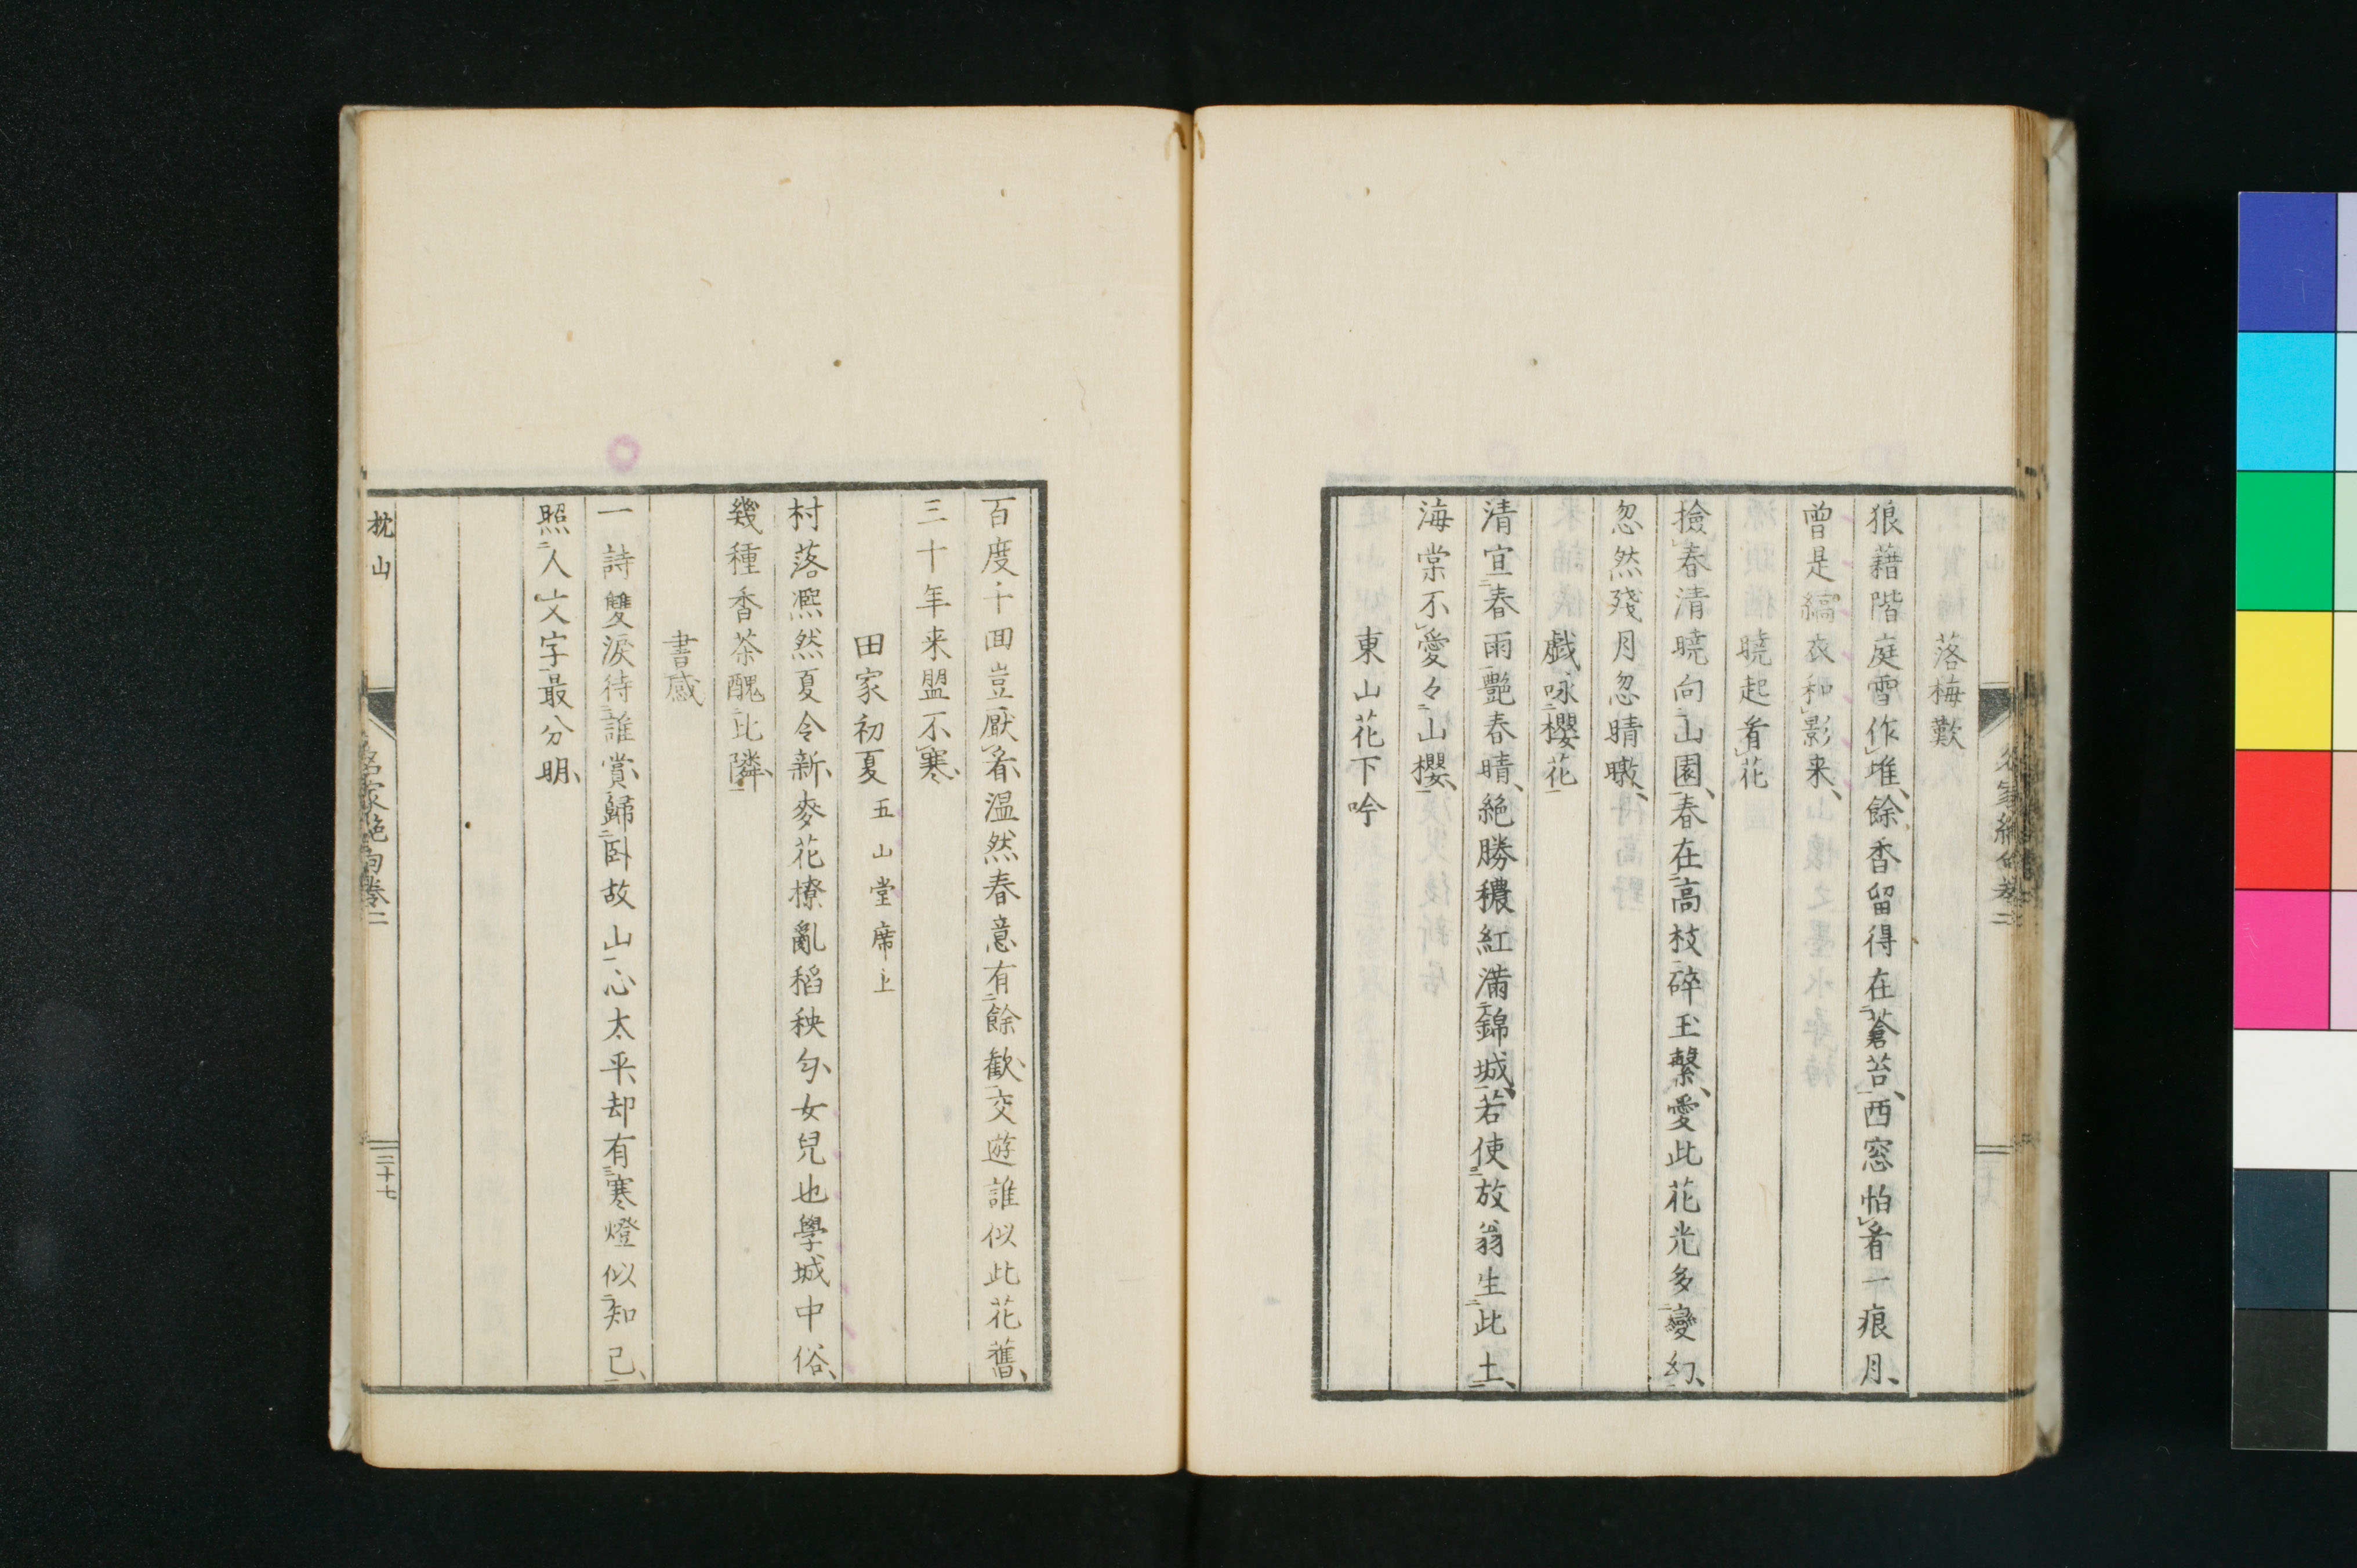 落梅歎
狼藉階庭雪作堆餘香留得在蒼苔西窓怕看一痕月
曽是縞衣和影来
曉起看花
撿春清曉向山園春在高枝碎玉繫愛此花光多變幻
忽然殘月忽晴暾
戯咏櫻花
清宜春雨艷春晴絶勝穠紅滿錦城若使放翁生此土
海棠不愛々山櫻
東山花下吟
百度千回豈厭看温然春意有餘歓交遊誰似此花舊
三十年来盟不寒
田家初夏 五山堂席上
村落凞然夏令新麥花撩亂稻秧匀女兒也學城中俗
幾種香茶醜比隣
書感
一詩雙淚待誰賞歸卧故山心太平却有寒燈似知己
照人文字最分明
枕山
名家絶句卷二
二十七